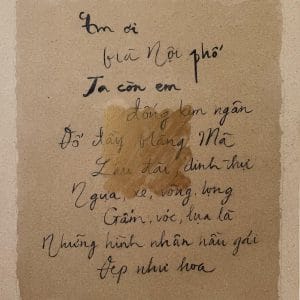 Em ơi
Hà Nội phố
Ta còn em
đống kim ngân
Đổ đầy Hàng Mã
Lâu đài dinh thự
Ngựa, xe, võng, lọng
Gấm, vóc, lụa là
Những hình nhân hầu gái
Đẹp như hoa